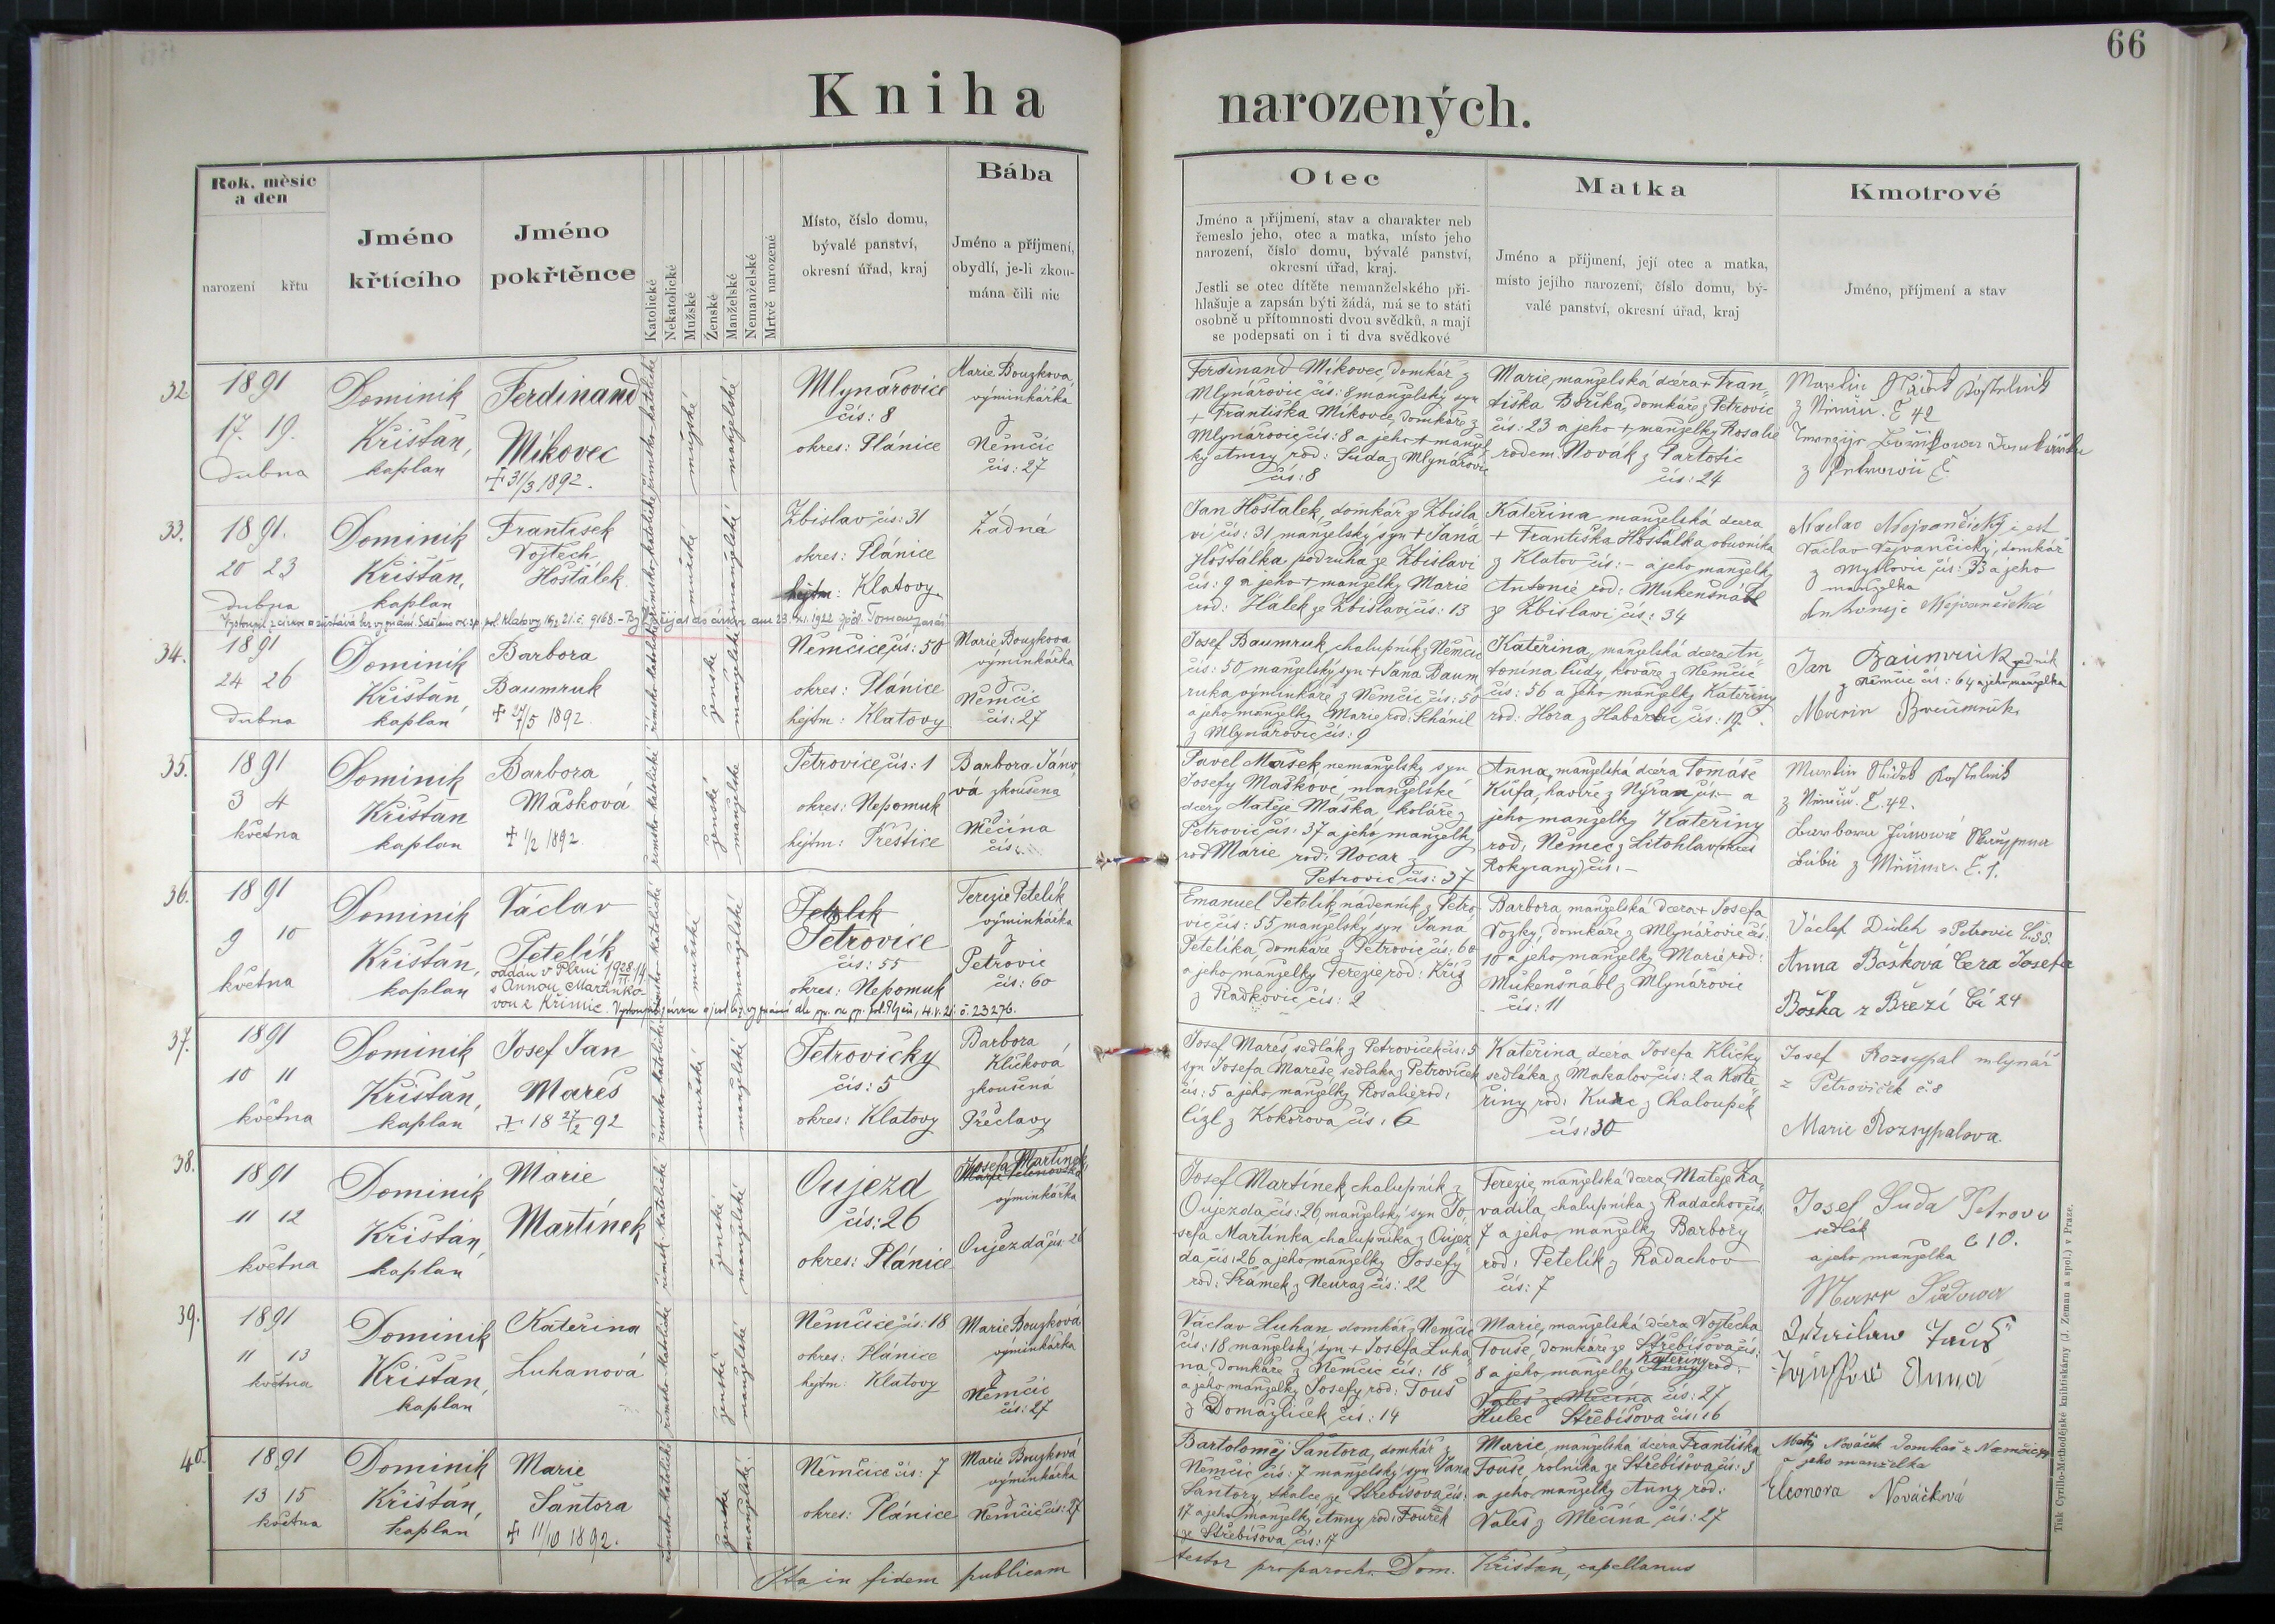 66
Kniha narozených.
Rok, měsíc
a den
narození křtu
Jméno
křtícího
Jméno
pokřtěnce
Katolické
Nekatolické
Mužské
Ženské
Manželské
Nemanželské
Mrtvě narozené
Místo, číslo domu,
bývalé panství,
okresní úřad, kraj
Bába
Jméno a příjmení,
obydlí, je-li zkou-
mána čili nic
Otec
Jméno a příjmení, stav a charakter neb
řemeslo jeho, otec a matka, místo jeho
narození, číslo domu, bývalé panství,
okresní úřad, kraj.
Jestli se otec dítěte nemanželského při-
hlašuje a zapsán býti žádá, má se to státi
osobně u přítomnosti dvou svědků, a mají
se podepsati on i ti dva svědkové
Matka
Jméno a příjmení, její otec a matka,
místo jejího narození, číslo domu, bý-
valé panství, okresní úřad, kraj
Kmotrové
Jméno, příjmení a stav
32
1891
17. 19.
dubna
Dominik
Křišťan,
kaplan
Ferdinand
Míkovec
+ 31/3 1892.
římsko-katolické
mužské
manželské
Mlynářovice
čís: 8
okres: Plánice
Marie Bouzková
výminkářka
z
Němčic
čís: 27
Ferdinand Míkovec, domkář z
Mlynářovic čís: 8 manželský syn
+ Františka Míkovce, domkáře z
Mlynářovic čís: 8 a jeho + manžel
ky Anny rod: Suda z Mlynářovic
čís: 8
Marie, manželská dcera + Fran-
tiška Boříka, domkáře z Petrovic
čís: 23 a jeho + manželky Rosalie
rodem Novák z Partotic
čís: 24
Martin
z Němčic. č 42
z Petrowic č
33.
1891.
20 23
dubna
Dominik
Křišťan,
kaplan
František
Vojtěch
Hošťálek
římsko-katolické
mužské
manželské
Zbislav čís: 31
okres: Plánice
hejtm: Klatovy
Žádná
Jan Hošťálek, domkář z Zbisla
vi čís: 31 manželský syn + Jana
Hošťálka podruha ze Zbislavi
čís: 9 a jeho + manželky Marie
rod: Hálek ze Zbislavi čís: 13
Kateřina, manželská dcera
+ Františka Hošťálka obuvníka
z Klatov čís: - a jeho manželky
Antonie rod: Mukensnábl
ze Zbislawi čís: 34
Václav Nejvančický, domkář
čís: 33 a jeho
manželka
Antonije Nejvančická
34.
1891
24 26
dubna
Dominik
Křišťan,
kaplan
Barbora
Baumruk
+ 27/5 1892.
římsko-katolické
ženské
manželské
Němčice čís: 50
okres: Plánice
hejtm: Klatovy
Marie Bouzkova
výminkářka
z
Němčic
čís: 27
Josef Baumruk, chalupník z Němčic
čís: 50 manželský syn + Jana Baum
ruka, výminkáře z Němčic čís: 50
a jeho manželky Marie rod: Schánil
z Mlynářovic čís: 9
Kateřina, manželská dcera An-
tonína Cudy, kováře z Němčic
čís: 56 a jeho manželky Kateřiny
rod: Hora z Habartic čís: 17.
Jan Baumruk
z Němčic čís: 64 a jeho manželka
Marie Baumruk
35.
1891
3 4
května
Dominik
Křišťan
kaplan
Barbora
Mašková
+ 1/2 1892.
římsko-katolické
ženské
manželské
Petrovice čís: 1
okres: Nepomuk
hejtm: Přeštice
Barbora Jáno-
vá zkoušena
z
Měčína
čís:
Pavel Mašek, nemanželský syn
Josefy Maškové, manželské
dcery Matěje Maška, koláře z
Petrovic čís: 37 a jeho manželky
rod Marie rod: Nocar z
Petrovic čís: 37
Anna, manželská dcera Tomáše
Kůfa, havíře z Nýřan čís: - a
jeho manželky Kateřiny
rod: Němec z Litohlav (okres
Rokycany) čís: -
z Němčic. č. 42.
36.
1891
9 10
května
Dominik
Křišťan,
kaplan
Václav
Petelík
oddán v Plzni
s Annou Martínko-
vou z Křimic.
římsko-katolické
mužské
manželské
Petrovice
čís: 55
okres: Nepomuk
Terezie Petelík
výminkářka
z
Petrovic
čís: 60
Emanuel Petelík, nádenník z Petro-
vic čís: 55, manželský syn Jana
Petelíka, domkáře z Petrovic čís: 60
a jeho manželky Terezie rod: Kříž
z Radkovic čís: 2
Barbora, manželská dcera + Josefa
Vozky, domkáře z Mlynářovic čís:
10 a jeho manželky Marie rod:
Mukensnábl z Mlynářovic
čís: 11
Anna Bošková Cera Josefa
Boška z Březí čí 24
37.
1891
10 11
května
Dominik
Křišťan,
kaplan
Josef Jan
Mareš
+ 18 27/2 92
římsko-katolické
mužské
manželské
Petrovičky
čís: 5
okres: Klatovy
Barbora
Kličková
zkoušená
z
Předslavy
Josef Mareš sedlák z Petrovíček čís: 5
syn Josefa Mareše, sedláka z Petrovíček
čís: 5 a jeho manželky Rosalie rod:
Cízl z Kokořova čís: 6
Kateřina, dcera Josefa Kličky
sedláka z Makalov čís: 2 a Kate-
řiny rod: z Chaloupek
čís: 30
Josef Rozsypal mlynář
z Petroviček č. 8
Marie Rozsypalova
38.
1891
11 12
května
Dominik
Křišťan,
kaplan
Marie
Martínek
římsk-katolické
ženské
manželské
Oujezd
čís: 26
okres: Plánice
Josefa Martínek
výminkářka
z
Oujezda čís: 26
Josef Martínek, chalupník z
Oujezda čís: 26, manželský syn Jo-
sefa Martínka, chalupníka z Oujez
da čís: 26 a jeho manželky Josefy
rod: Šrámek z Neuraz čís: 22
Terezie, manželská dcera Matěje Za-
vadila, chalupníka z Radachov čís:
7 a jeho manželky Barbory
rod: Petelík z Radachov
čís: 7
Josef Suda Petrov
sedlák
č 10.
a jeho manželka
39.
1891
11 13
května
Dominik
Křišťan,
kaplan
Kateřina
Luhanová
římsko-katolické
ženské
manželské
Němčice čís: 18
okres: Plánice
hejtm: Klatovy
Marie Bouzková
výminkářka
z
Němčic
čís: 27
Václav Luhan domkář z Němčic
čís: 18 manželský syn + Josefa Luha
na, domkáře z Němčic čís: 18
a jeho manželky Josefy rod: Touš
z Domažliček čís: 14
Marie, manželská dcera Vojtěcha
Touše, domkáře ze Střebišova čís:
Kateřiny
8 a jeho manželky Anny rod.
Valeš ze Měčína čís: 27
Hulec Střebišova čís: 16
Anna
40.
1891
13 15
května
Dominik
Křišťan,
kaplan
Marie
Šantora
+ 11/10 1892.
římsko-katolické
ženské
manželské
Němčice čís: 7
okres: Plánice
Marie Bouzková
výminkářka
z
Němčic čís: 27
Bartoloměj Šantora, domkář z
Němčic čís: 7 manželský syn Jana
Šantory, skalce ze Střebišova čís:
17 a jeho manželky Anny rod: Fouřek
ze Střebišova čís: 17
Marie, manželská dcera Františka
Touše, rolníka ze Střebišova čís: 3
a jeho manželky Anny rod:
Valeš z Měčína čís: 27
Matěj Nováček Domkař z Němčic
a jeho manželka
Eleonora Nováčková
Ita in fidem publicam
testor pro paroch. Dom. Křišťan, capellanus
Tisk Cyrillo-Methodějské knihtiskárny (J. Zeman a spol.) v Praze.